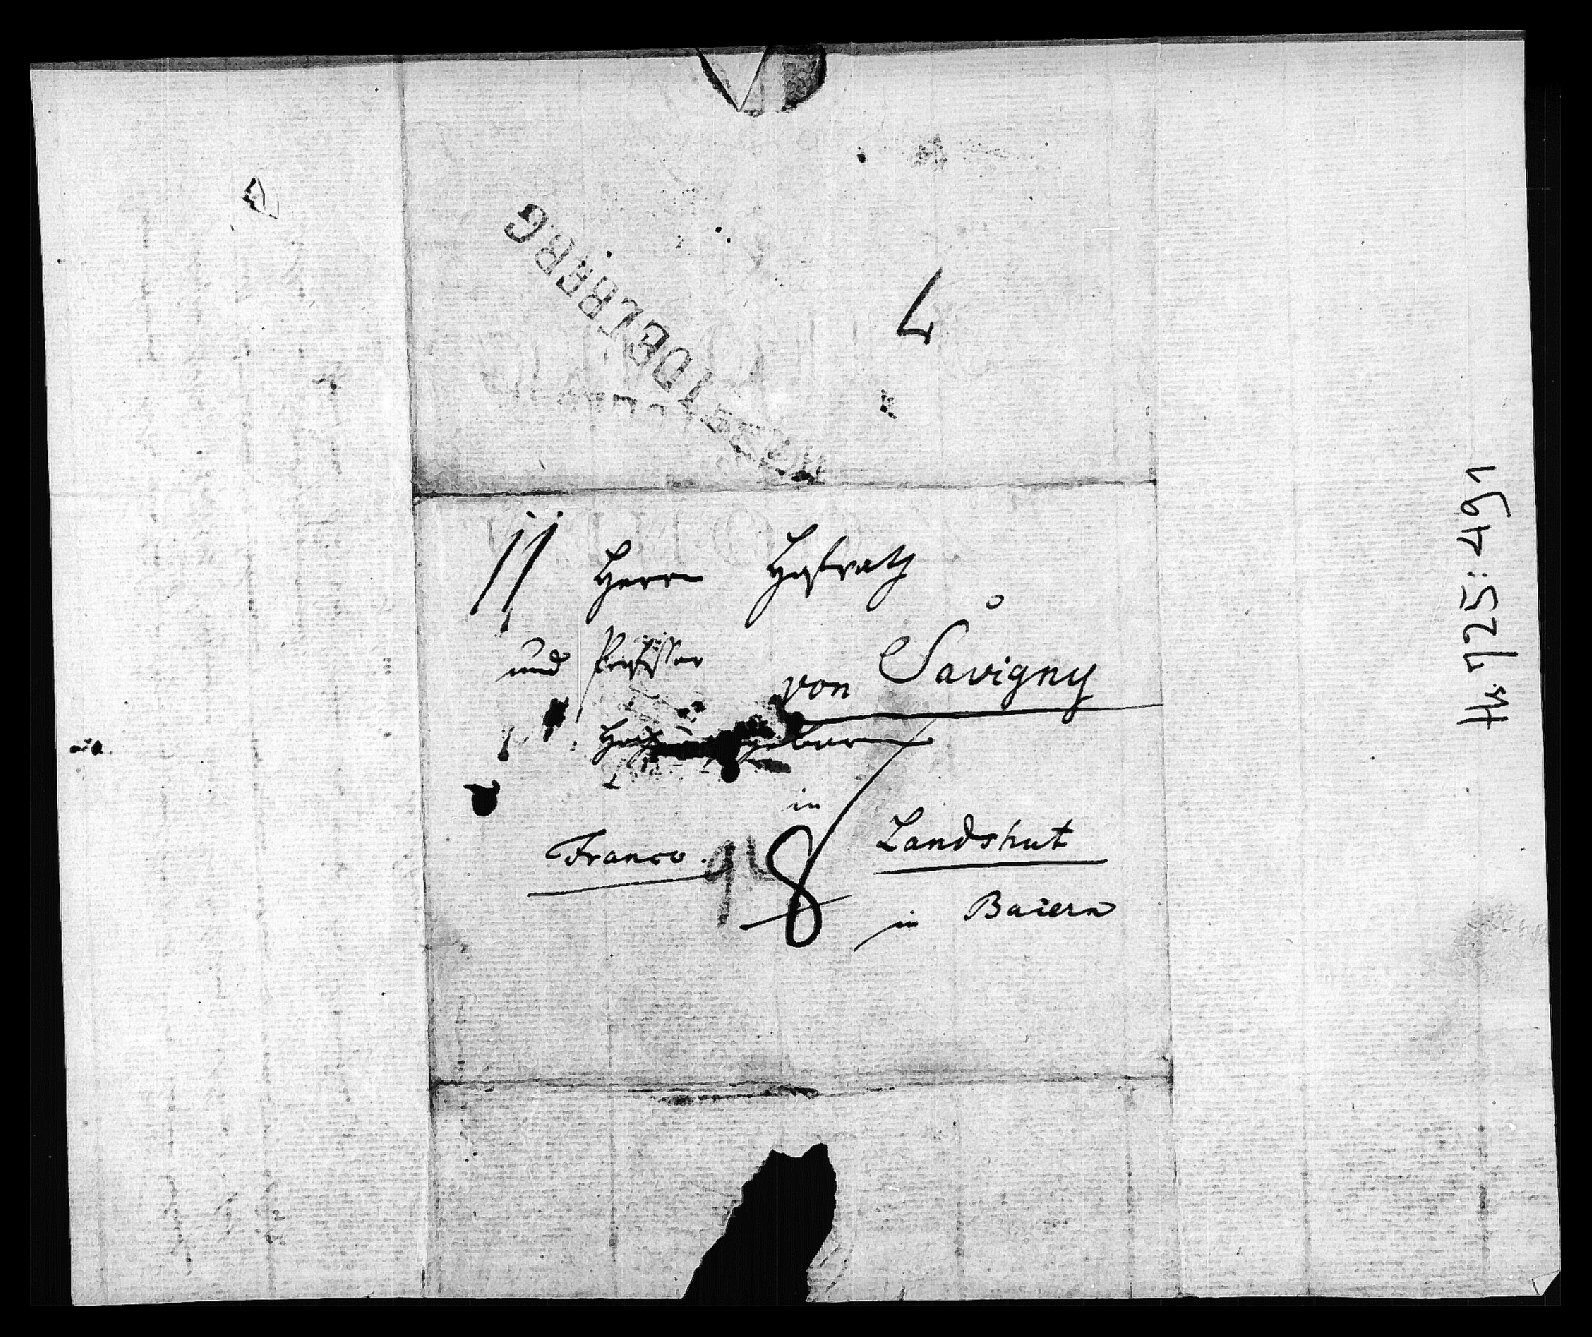 HEIDELBERG
Herrn Hofrath
und Professor
von Savigny
in
Landshut
Franco.
8
in Baiern
Hs. 725: 491